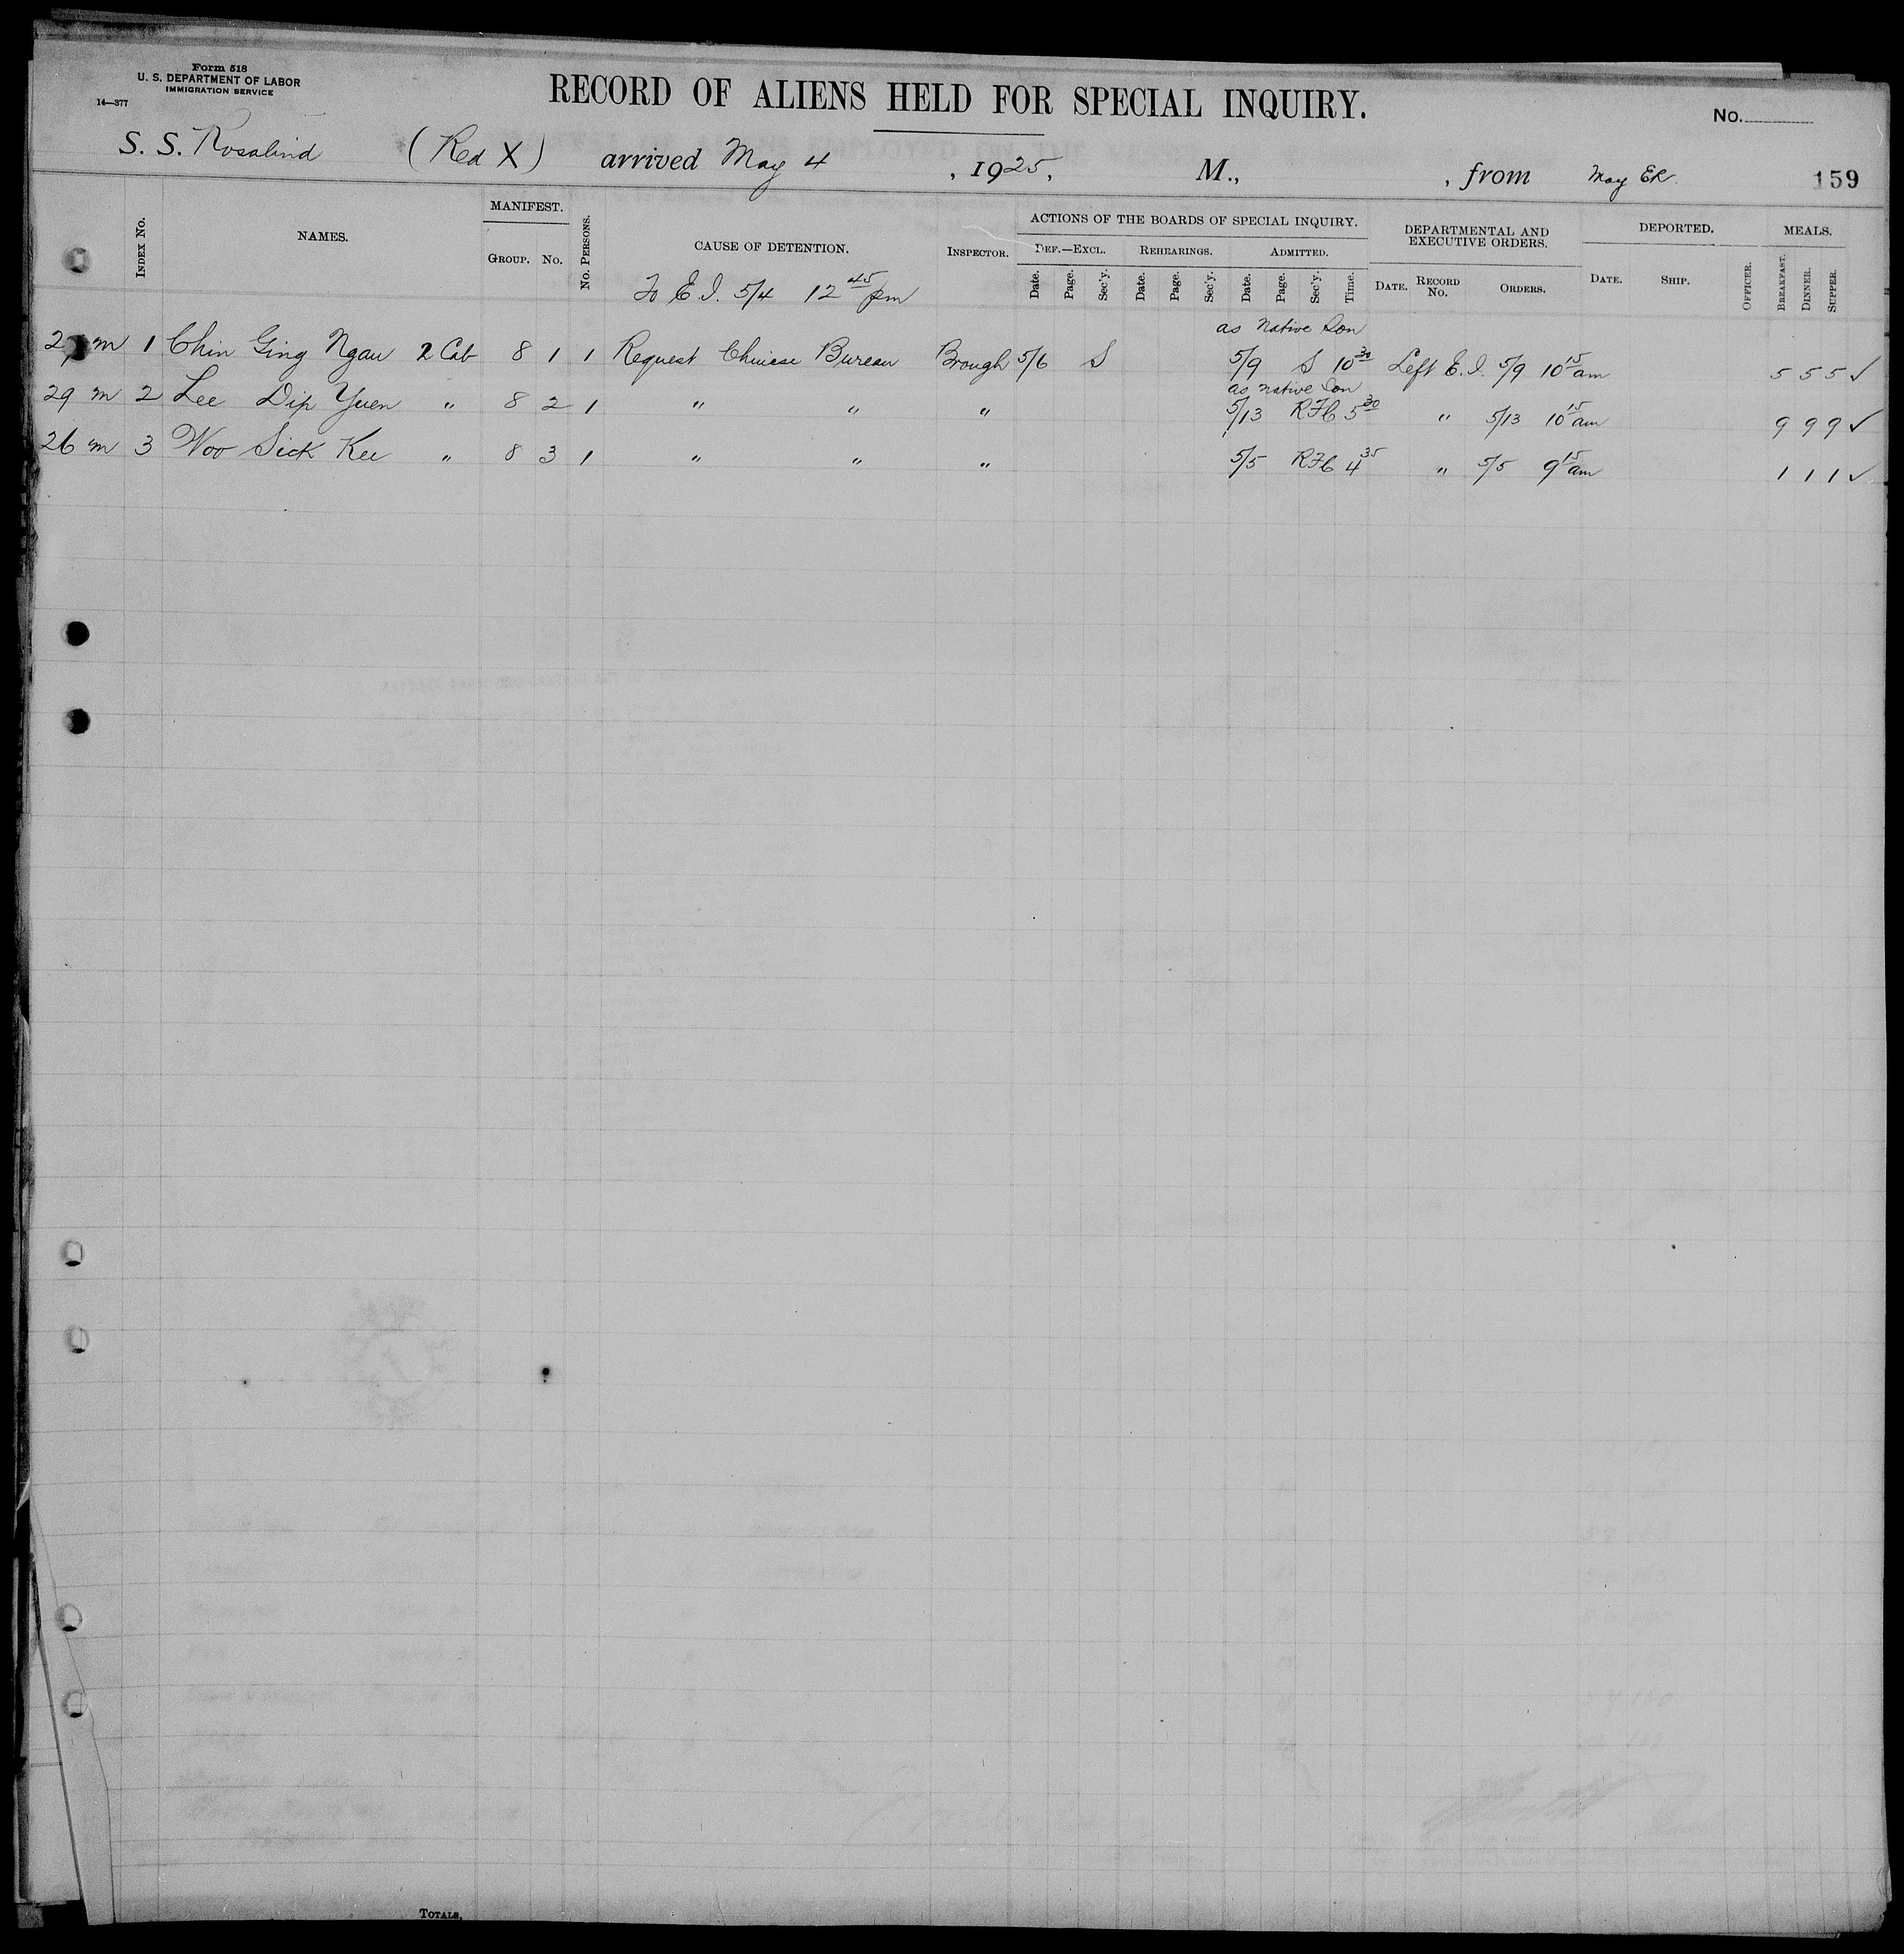 Form 518
U. S. DEPARTMENT OF LABOR
IMMIGRATION SERVICE
14—377
RECORD OF ALIENS HELD FOR SPECIAL INQUIRY.
No.
S. S. Rosalind (Red X) arrived May 4, 1925, M., from May ER. 159
INDEX NO. NAMES. MANIFEST. GROUP. NO. NO. PERSONS. CAUSE OF DETENTION. INSPECTOR. ACTIONS OF THE BOARDS OF SPECIAL INQUIRY. DEPARTMENTAL AND EXECUTIVE ORDERS. DEPORTED. MEALS.
DEF.—EXCL. REHEARINGS. ADMITTED.
Date. Page. Sec'y. Date. Page. Sec'y. Date. Page. Sec'y. Time. DATE. RECORD NO. ORDERS. DATE. SHIP. OFFICER. BREAKFAST. DINNER. SUPPER.
To E. I. 5/4 12 45 pm
as Native Son
m 1 Chin Ging Ngau 2 Cab 8 1 1 Request Chinese Bureau Brough 5/6 S 5/9 S 10 30 Left E. I. 5/9 10 15 am 5 5 5 ✓
as native Son
29 m 2 Lee Dip Yuen " 8 2 1 " " " 5/13 RFC 5 30 " 5/13 10 15 am 9 9 9 ✓
26 m 3 Woo Sick Kee " 8 3 1 " " " 5/5 RFC 4 35 " 5/5 9 15 am 1 1 1 ✓
TOTALS.